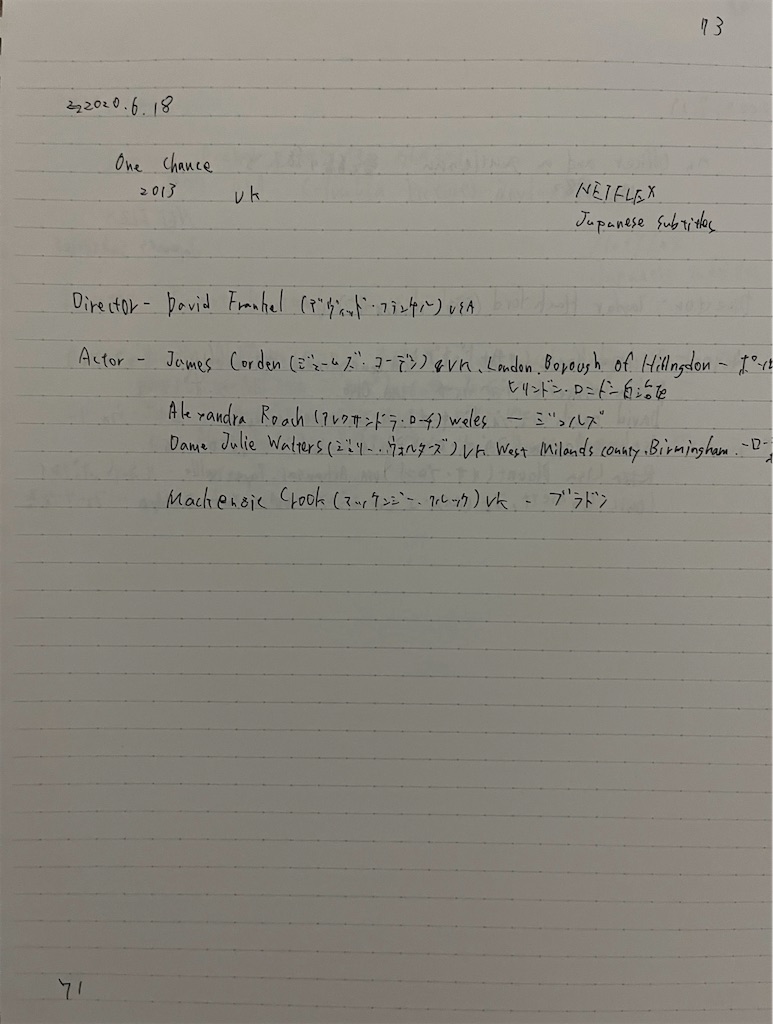 73
2020.6.18
One Chance
2013 UK NETFLEX
Japanese subtitles
Director - David Frankel (デヴィッド・フランケル) USA
Actor - James Corden (ジェームズ・コーデン) UK, London Borough of Hillngdon - ポール
ヒリンドン・ロンドン自治区
Alexandra Roach (アレクサンドラ・ローチ) weles - ジュルズ
Dame Julie Walters (ジュリー・ウォルターズ) UK West Milands county, Birmingham. -
Mackenzie Crook (マッケンジー・クルック) UK - ブラドン
71